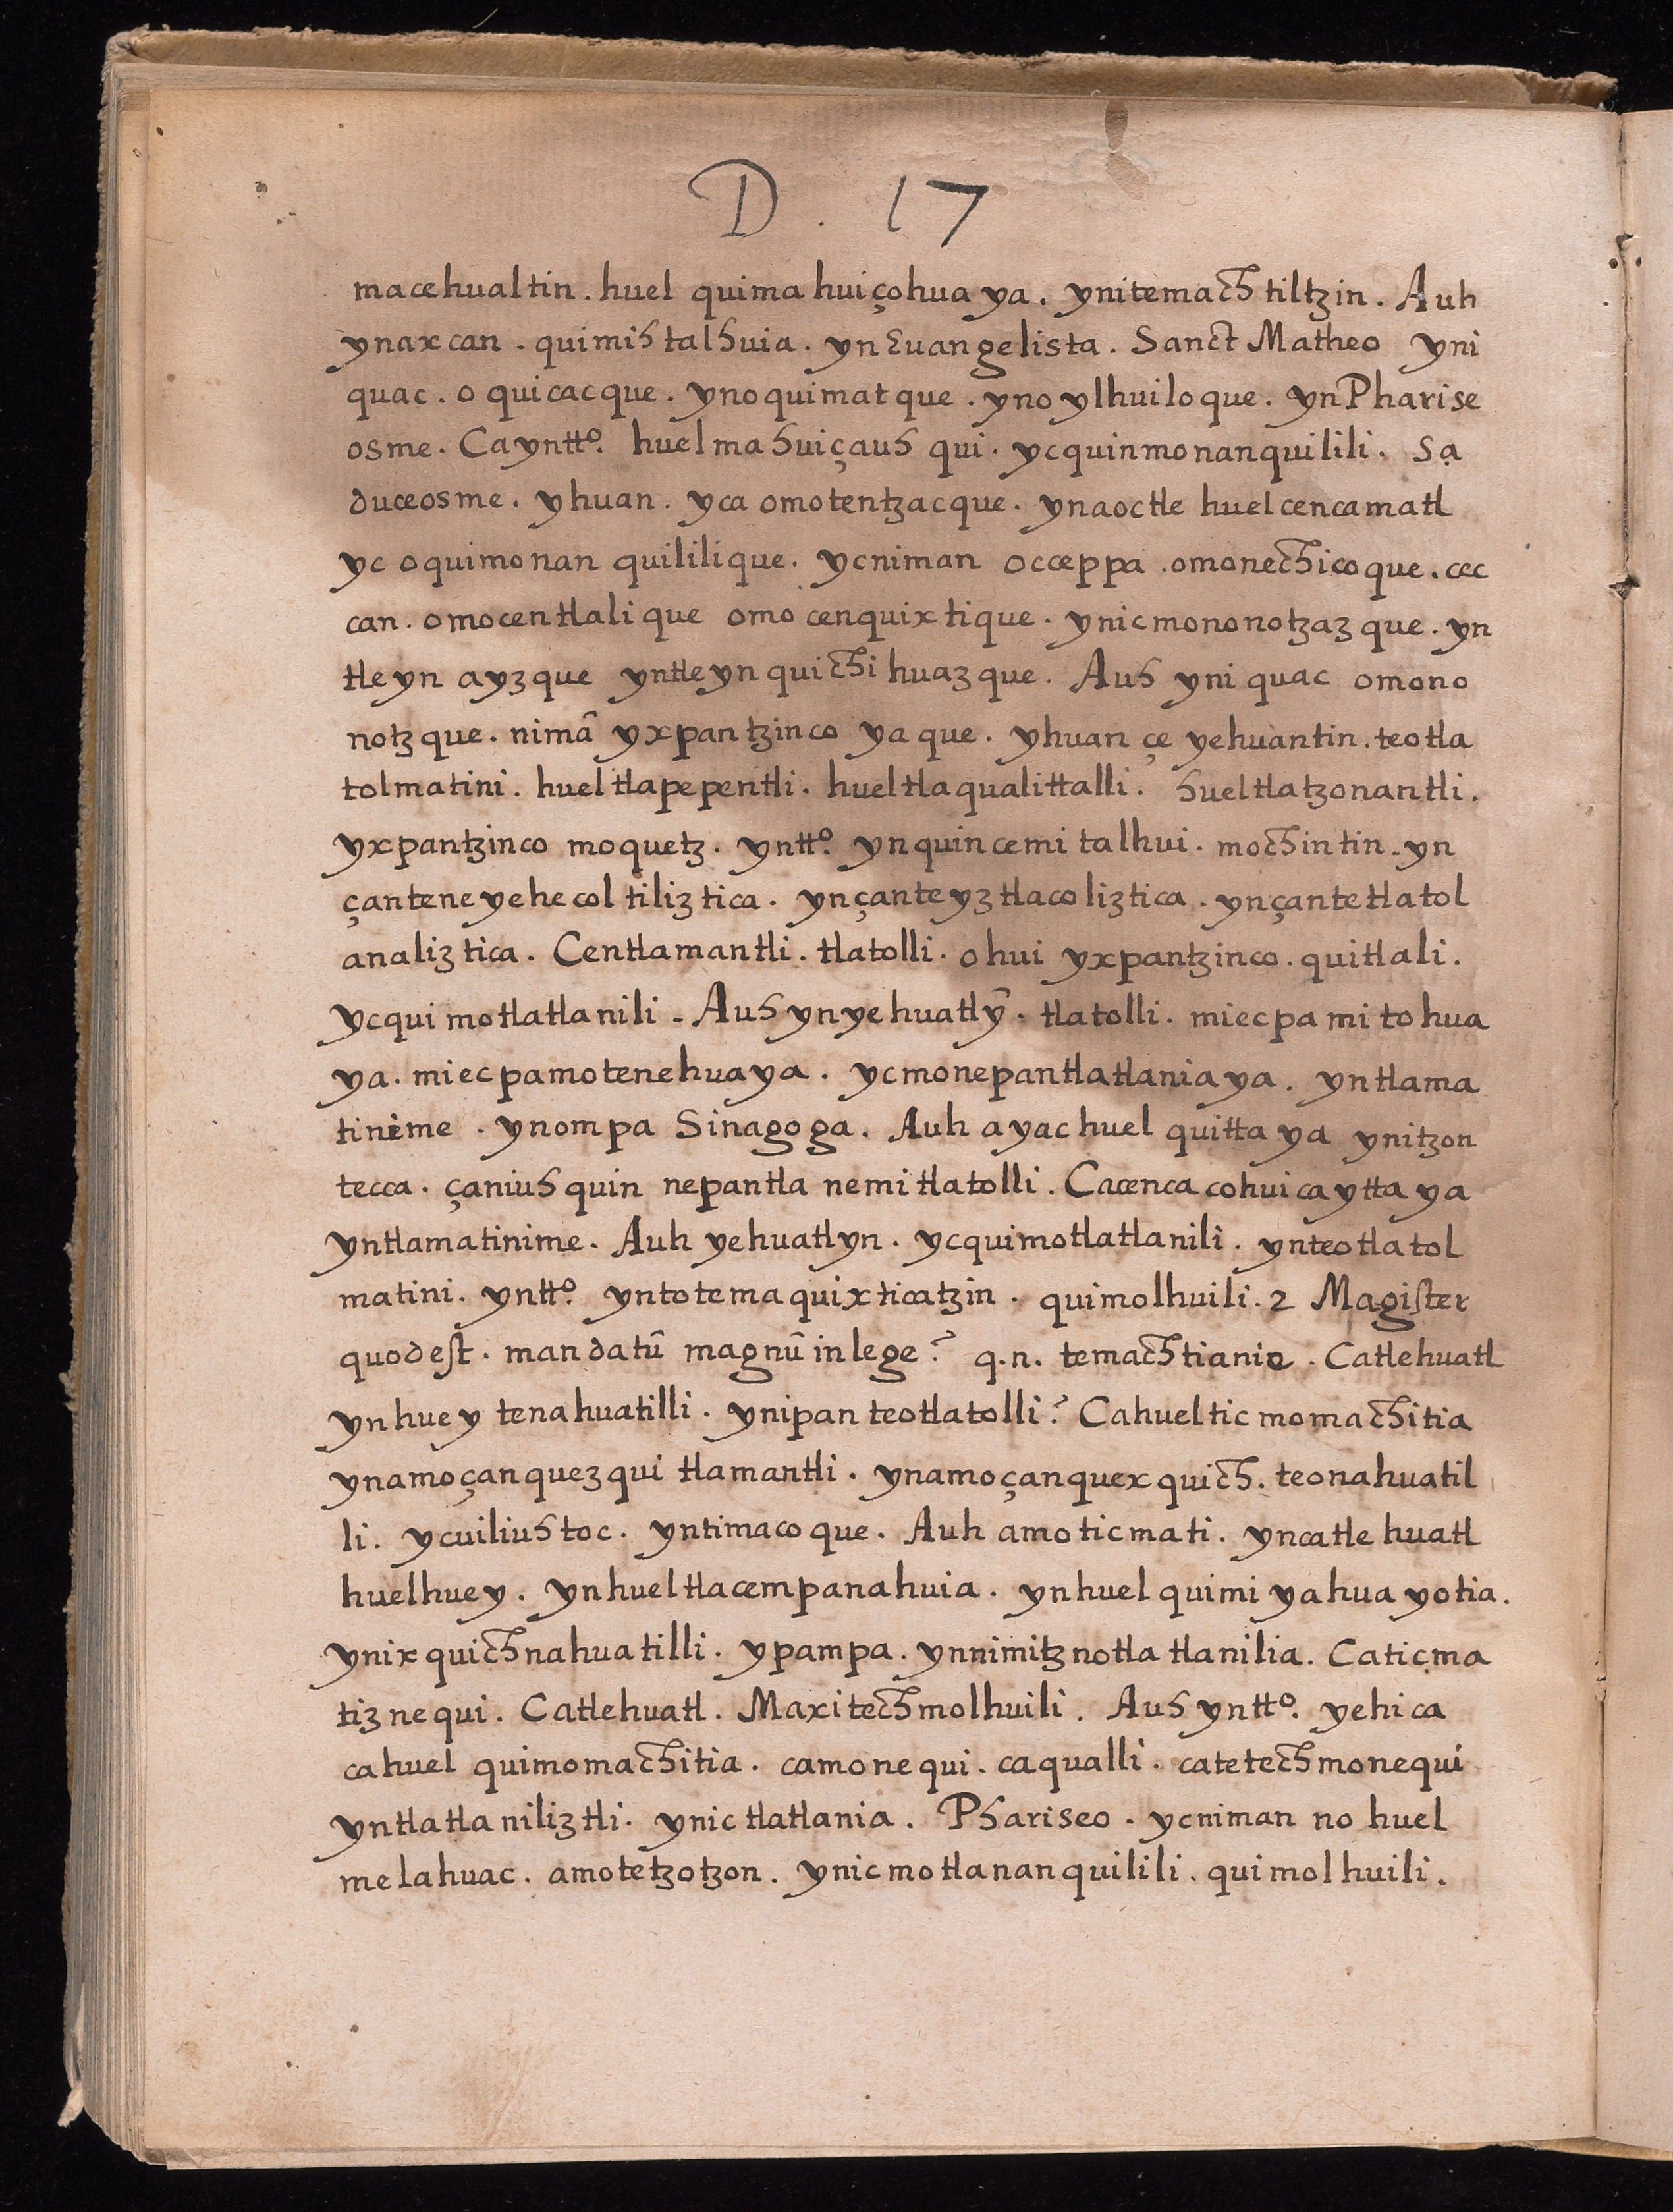 D. 17
macehualtin. huel quimahuiçohuaya. ynitemachtiltzin. Auh
ynaxcan. quimihtalhuia. yn Euangelista. Sanct Matheo yni
quac. oquicacque. ynoquimatque. ynoylhuiloque. yn Pharise
osme. Cayntto. huelmahuiçauhqui. ycquinmonanquilili. Sa
duceosme. yhuan. yca omotentzacque. ynaoctle huelcencamatl
yc oquimonanquililique. ycniman occeppa. omonechicoque. cec
can. omocentlalique omocenquixtique. ynicmononotzazque. yn
tleyn ayzque yntleyn quichihuazque. Auh yniquac omono
notzque. nimã yxpantzinco yaque. yhuan çe yehuantin. teotla
tolmatini. hueltlapepentli. hueltlaqualittalli. hueltlatzonantli.
yxpantzinco moquetz. yntto. ynquincemitalhui. mochintin. yn
çanteneyehecoltiliztica. ynçanteyztlacoliztica. ynçantetlatol
analiztica. Centlamantli. tlatolli. ohui yxpantzinco. quitlali.
ycquimotlatlanili. Auh ynyehuatlỹ. tlatolli. miecpa mitohua
ya. miecpamotenehuaya. ycmonepantlatlaniaya. yntlama
tinime. ynompa Sinagoga. Auh ayac huel quittaya ynitzon
tecca. çaniuhquin nepantla nemi tlatolli. Cacenca cohuicayttaya
yntlamatinime. Auh yehuatlyn. ycquimotlatlanili. ynteotlatol
matini. yntto. yntotemaquixticatzin. quimolhuili. 2 Magister
quodest. mandatũ magnũ inlege? q.n. temachtianie. Catlehuatl
ynhuey tenahuatilli. ynipan teotlatolli? Cahuelticmomachitia
ynamoçanquezqui tlamantli. ynamoçanquexquich. teonahuatil
li. ycuiliuhtoc. yntimacoque. Auh amoticmati. yncatlehuatl
huelhuey. ynhueltlacempanahuia. ynhuel quimiyahuayotia.
ynixquichnahuatilli. ypampa. ynnimitznotlatlanilia. Caticma
tiznequi. Catlehuatl. Maxitechmolhuili. Auh yntto. yehica
cahuel quimomachitia. camonequi. caqualli. catetechmonequi
yntlatlaniliztli. ynictlatlania. Phariseo. ycniman no huel
melahuac. amotetzotzon. ynicmotlananquilili. quimolhuili.